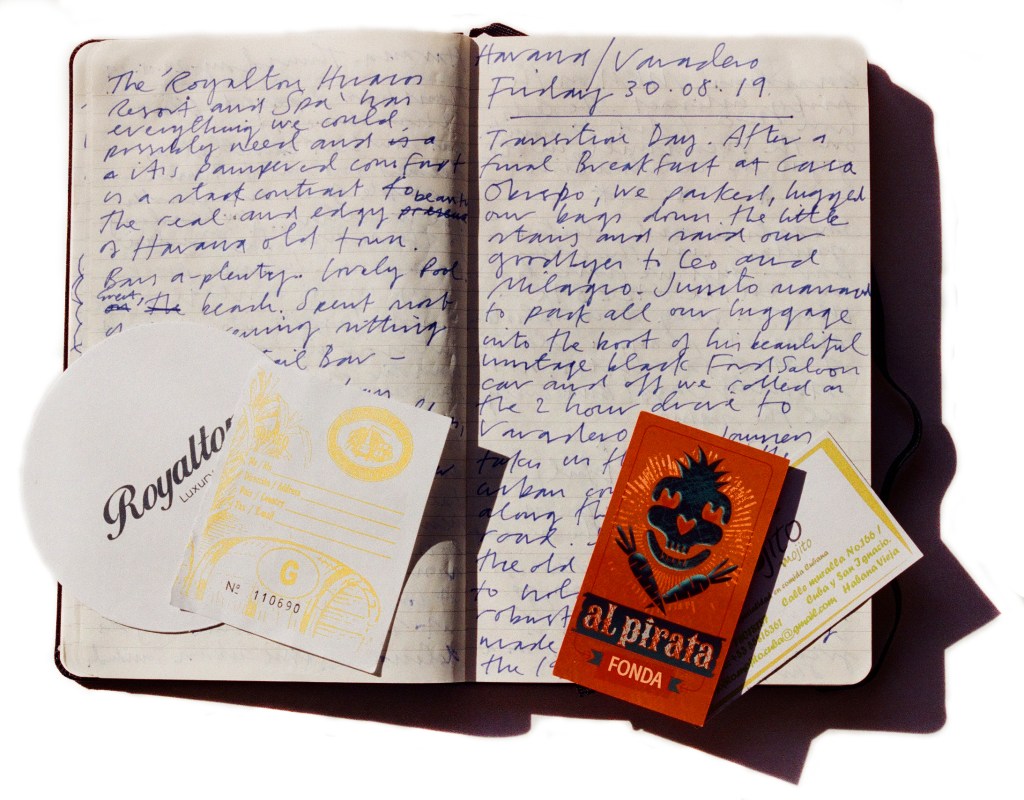 The 'Royalton Hicacos
Resort and Spa' has
everything we could
possibly need and is a
a it's pampered comfort
is a stark contrast to
the real and edgy beauty
of Havana old town.
Bars a-plenty. Lovely Pool.
Great, The beach. Spent most
evening sitting
tail Bar -
Royalton
Luxury
G
Nº 110690
Havana/Varadero
Friday 30.08.19.
Transition Day. After a
final Breakfast at Casa
Obispo, we packed, lugged
our bags down the little
stairs and said our
goodbyes to Leo and
Milagro. Junito managed
to pack all our luggage
into the boot of his beautiful
vintage black Ford Saloon
car and off we rolled on
the 2 hour drive to
Varadero. journey
takes in
urban
along the
road.
the old
to
robust
made
the 19
al pirata
FONDA
Mojito
Calle muralla No.166 /
Cuba y San Ignacio,
Habana Vieja
cuba@gmail.com